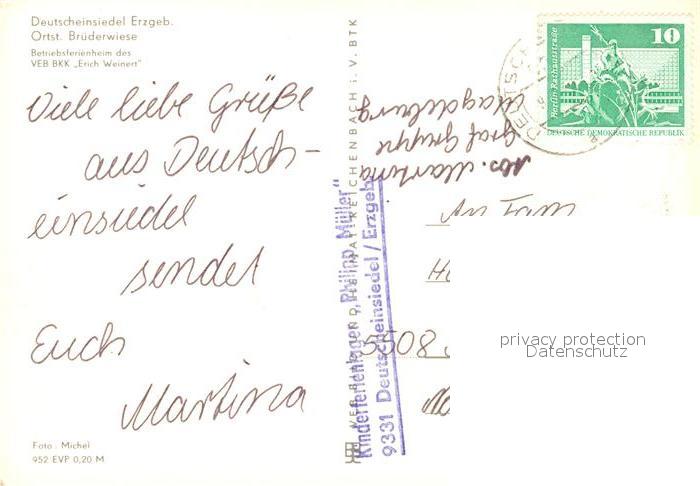 Deutscheinsiedel Erzgeb.
Ortst. Brüderwiese
Betriebsferienheim des
VEB BKK „Erich Weinert"
Viele liebe Grüße
aus Deutsch-
einsiedel
sendet
Euch
Martina
Foto: Michel
952 EVP 0,20 M
REICHENBACH i. V. BTK
Kinderferienlager „Philipp Müller"
9331 Deutscheinsiedel / Erzgeb.
Abs. Martina
Graf Gruppe
Magdeburg
10
Berlin-Rathausstraße
DEUTSCHE DEMOKRATISCHE REPUBLIK
DEUTSCH
An Fam
5508
privacy protection
Datenschutz